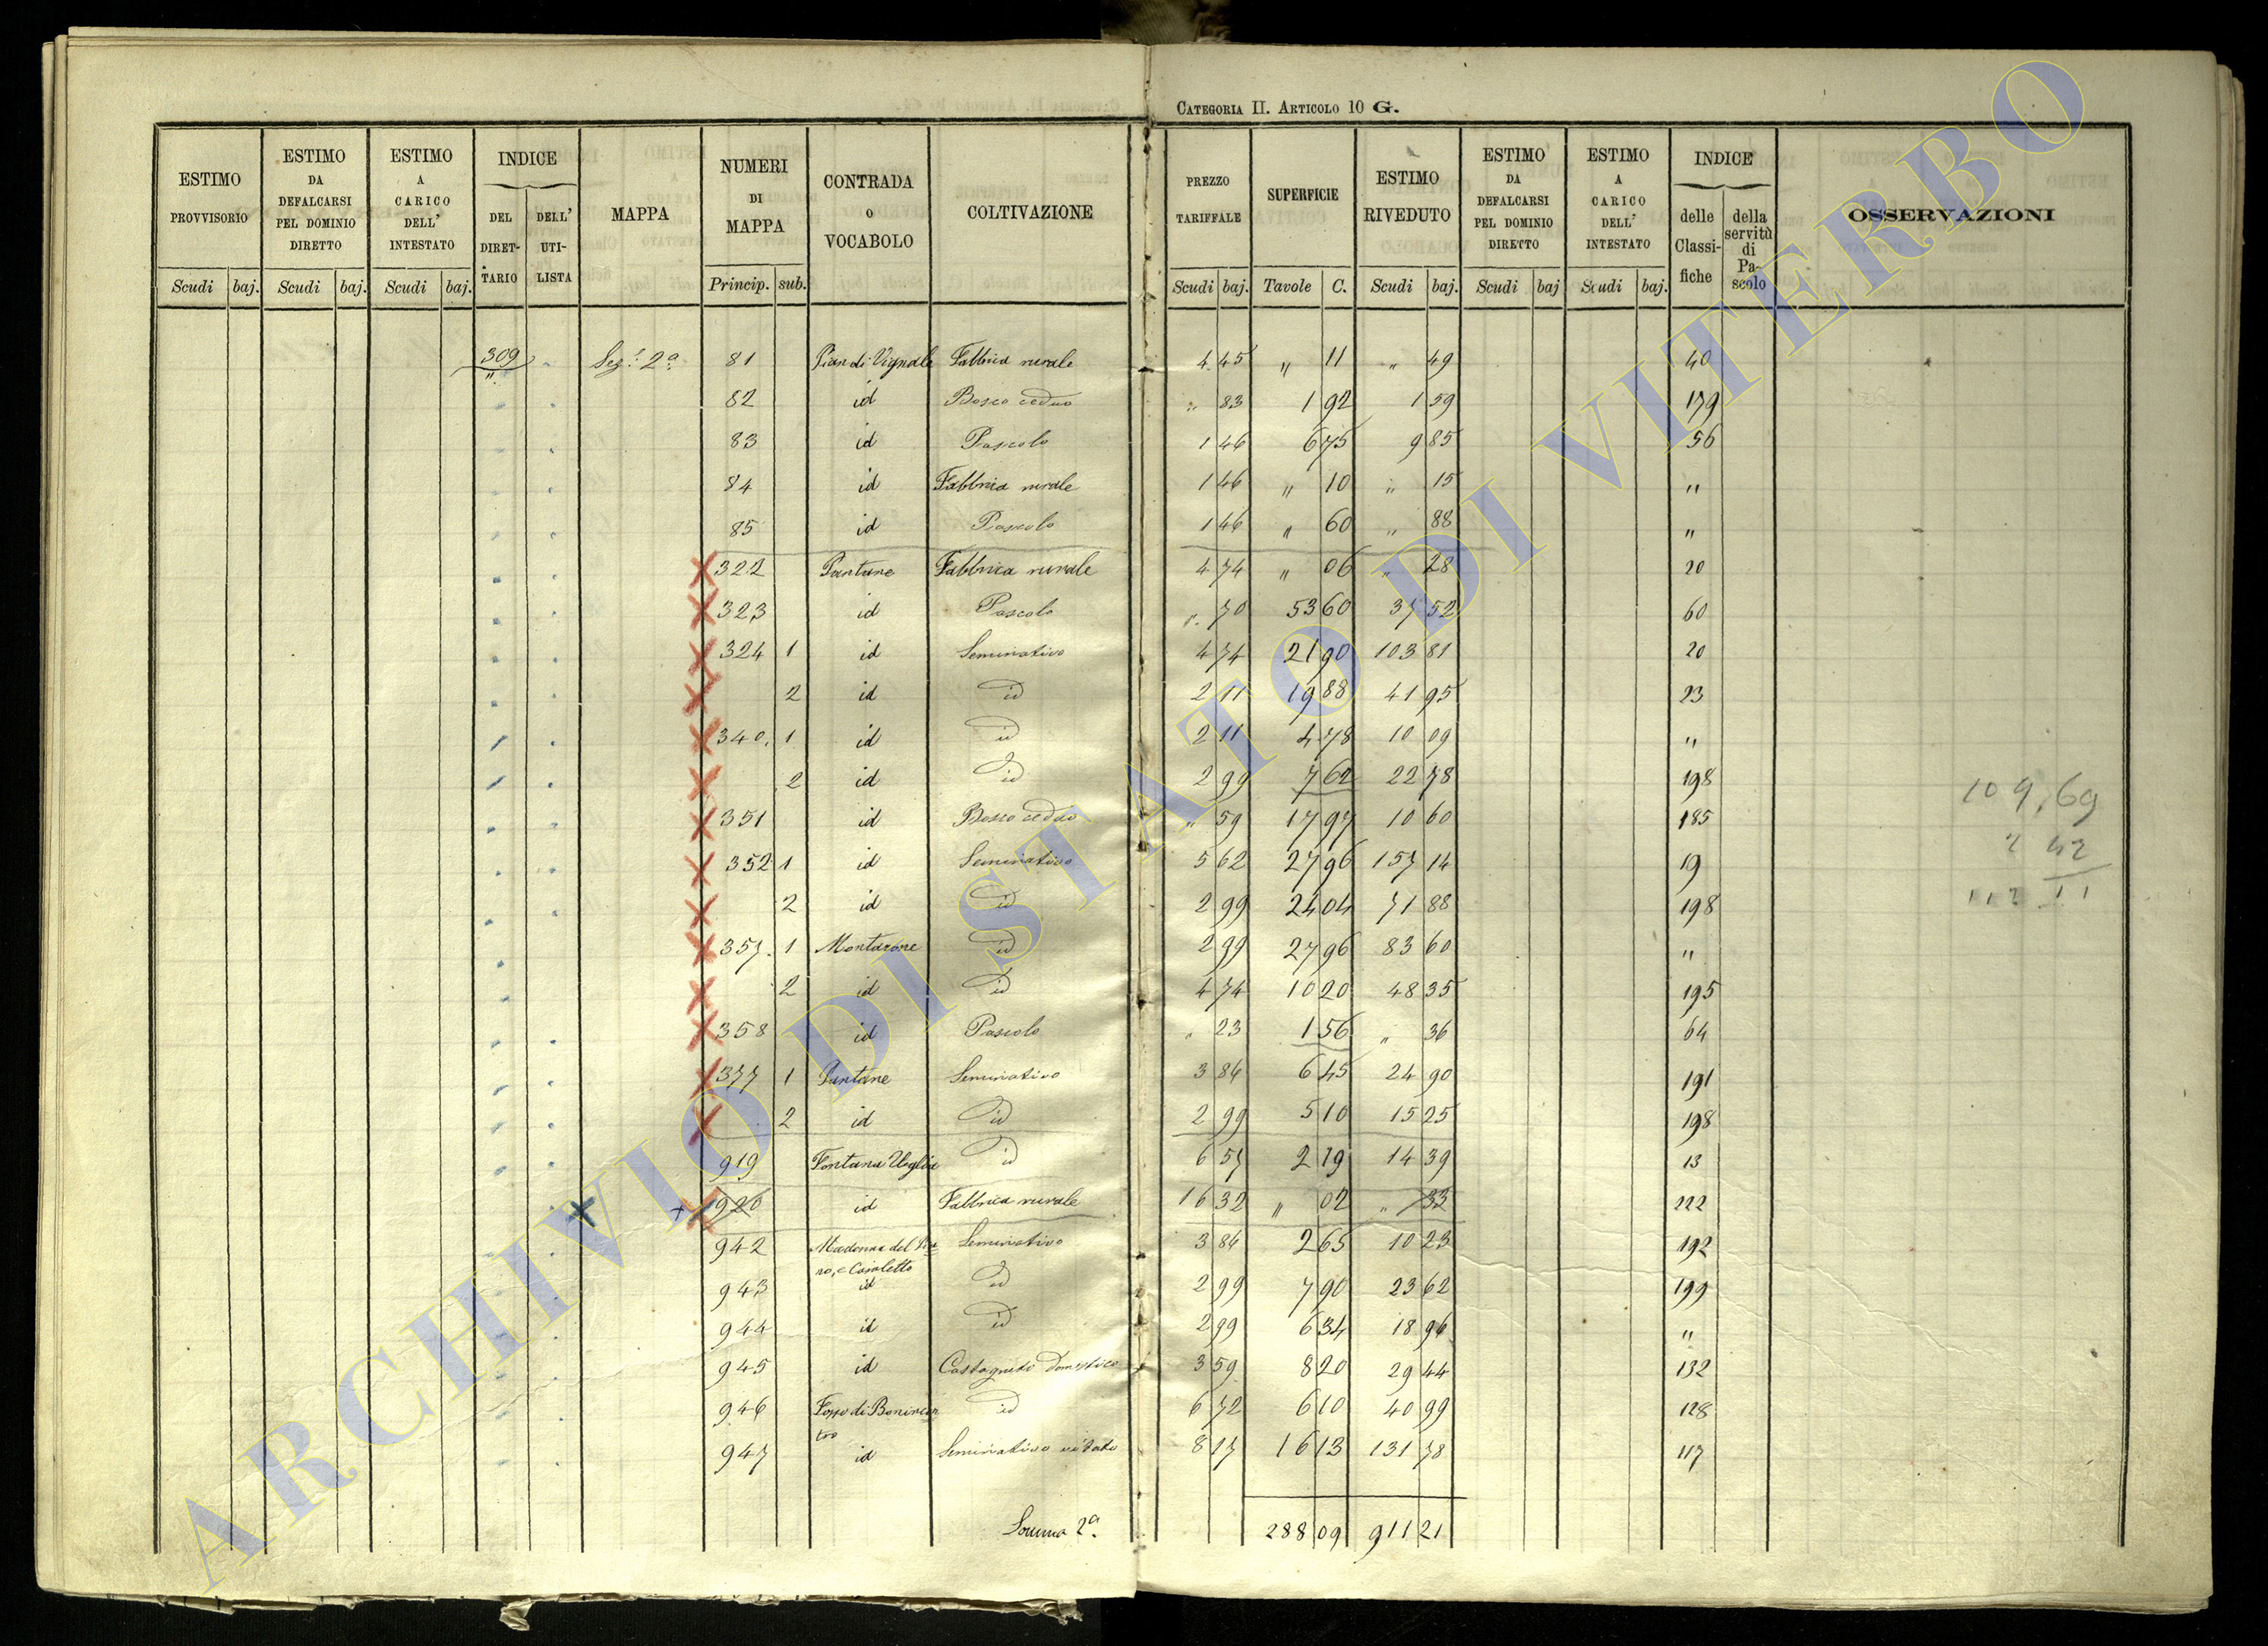 CATEGORIA II. ARTICOLO 10 G.
ESTIMO PROVVISORIO Scudi baj.
ESTIMO DA DEFALCARSI PEL DOMINIO DIRETTO Scudi baj.
ESTIMO A CARICO DELL' INTESTATO Scudi baj.
INDICE DEL DIRETTARIO DELL' UTILISTA
MAPPA
NUMERI DI MAPPA Princip. sub.
CONTRADA O VOCABOLO
COLTIVAZIONE
PREZZO TARIFFALE Scudi baj.
SUPERFICIE Tavole C.
ESTIMO RIVEDUTO Scudi baj.
ESTIMO DA DEFALCARSI PEL DOMINIO DIRETTO Scudi baj
ESTIMO A CARICO DELL' INTESTATO Scudi baj.
INDICE delle Classifiche della servitù di Pascolo
OSSERVAZIONI
309 Sez.e 2a 81 Pian di Vignale Fabbrica rurale 4 45 " 11 " 49 40
82 id Bosco ceduo " 83 1 92 1 59 179
83 id Pascolo 1 46 6 75 9 85 56
84 id Fabbrica rurale 1 46 " 10 " 15 "
85 id Pascolo 1 46 " 60 " 88 "
322 Pantane Fabbrica rurale 4 74 " 06 " 28 20
323 id Pascolo " 70 53 60 37 52 60
324 1 id Seminativo 4 74 21 90 103 81 20
2 id id 2 11 19 88 41 95 23
340 1 id id 2 11 4 78 10 09 "
2 id id 2 99 7 62 22 78 198
351 id Bosco ceduo " 59 17 97 10 60 185
352 1 id Seminativo 5 62 27 96 157 14 19
2 id id 2 99 24 04 71 88 198
357 1 Montarone id 2 99 27 96 83 60 "
2 id id 4 74 10 20 48 35 195
358 id Pascolo " 23 1 56 " 36 64
377 1 Pantane Seminativo 3 86 6 45 24 90 191
2 id id 2 99 5 10 15 25 198
919 Fontana Uoglia id 6 57 2 19 14 39 13
920 id Fabbrica rurale 16 32 " 02 " 33 222
942 Madonna del Pia Seminativo 3 86 2 65 10 23 192
no, e Casaletto
943 id id 2 99 7 90 23 62 199
944 id id 2 99 6 34 18 96 "
945 id Castagneto domestico 3 59 8 20 29 44 132
946 Fosso di Bonincon id 6 72 6 10 40 99 128
tro
947 id Seminativo vitato 8 17 16 13 131 78 117
Somma 2a. 288 09 911 21
109,69
2 42
112 11
ARCHIVIO DI STATO DI VITERBO